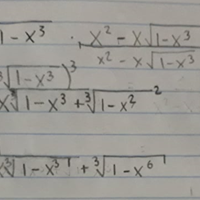 1-x³ · x² - x√1-x³
x² - x√1-x³
³√1-x³)³
x³√1-x³ + ³√1-x² ²
x³√1-x³ + ³√1-x⁶